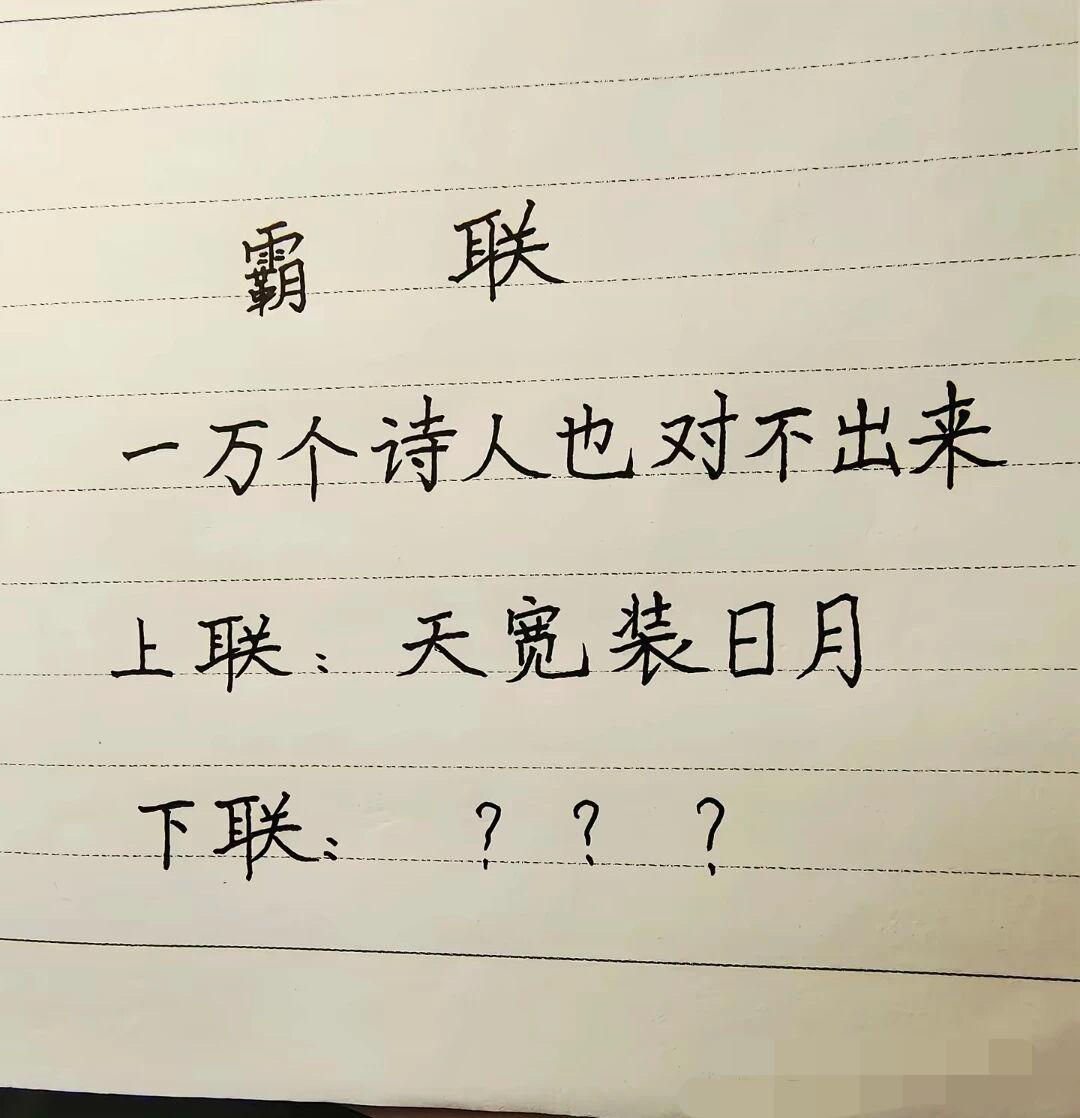 霸 联
一万个诗人也对不出来
上联：天宽装日月
下联：？？？